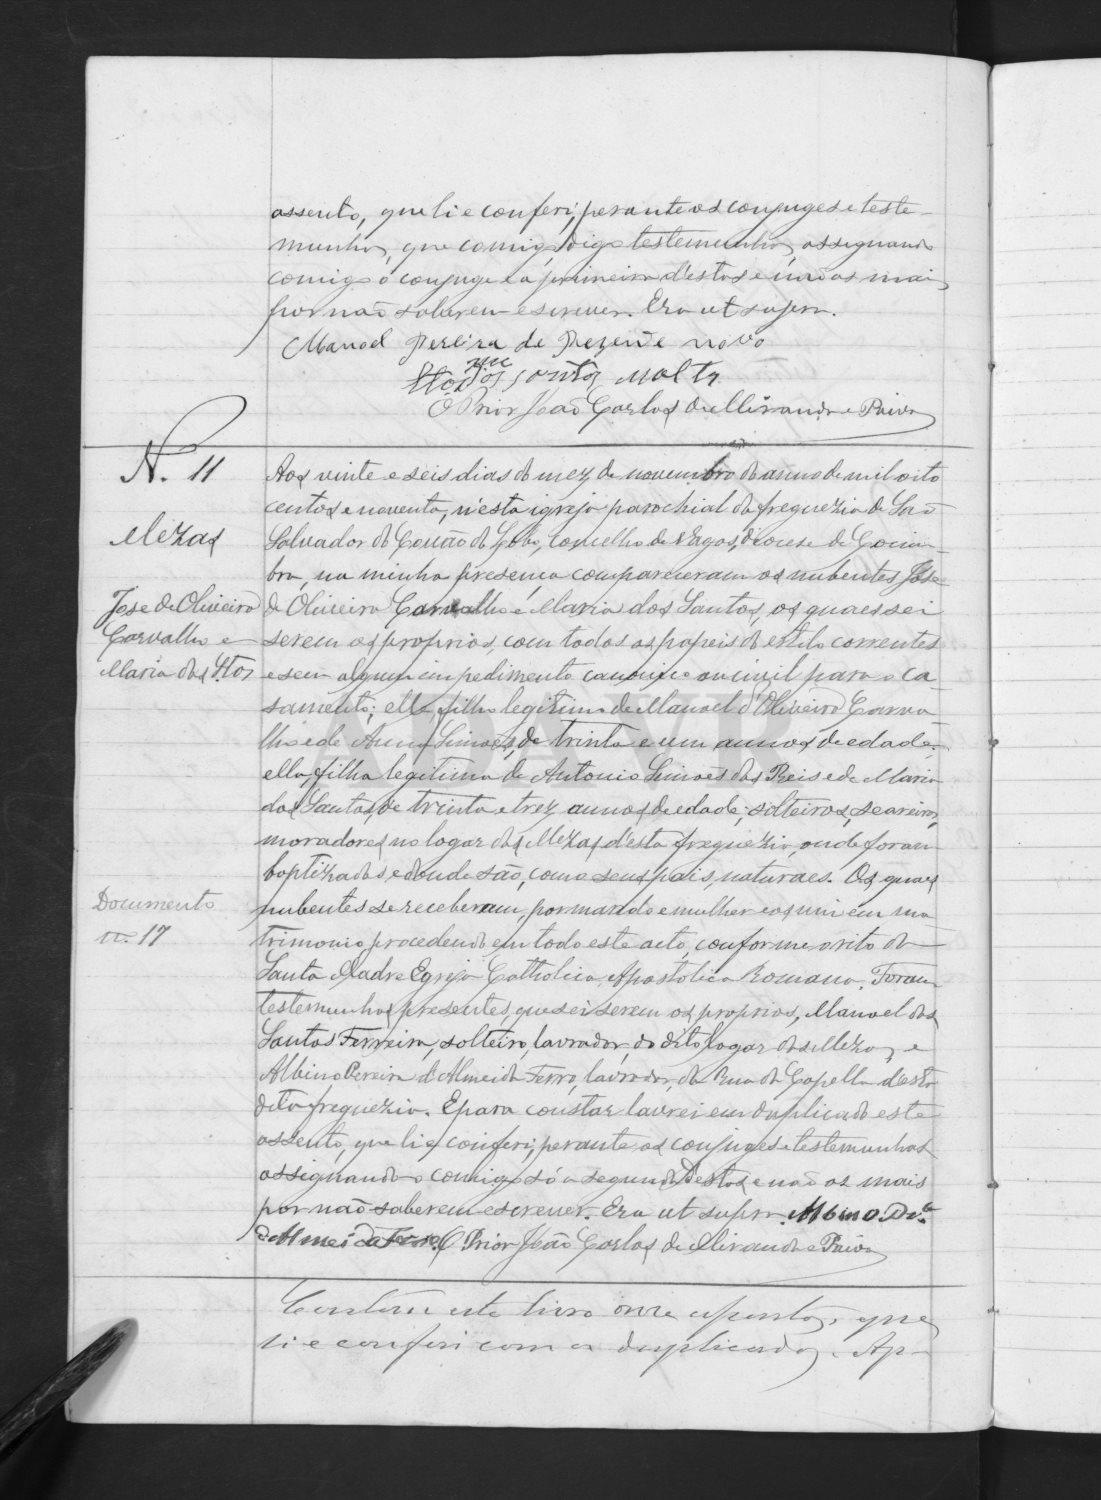 assento, que li e conferi, perante os conjuges e teste-
munhas, que comigo, digo testemunhas, assignando
comigo o conjuge e a primeira d'estas e não as mais,
por não saberem escrever. Era ut supra.
Manoel Pereira de Rezende novo
dos santos malta
O Prior João Carlos de Miranda e Paiva
N. 11
Mezas
Jose de Oliveira
Carvalho e
Maria dos Stos
Aos vinte e seis dias do mez de novembro do anno de mil oito
centos e noventa, n'esta igreja parochial da freguezia de São
Salvador do Covão do Lobo, concelho de Vagos, diocese de Coim-
bra, na minha presença compareceram os nubentes Jose
de Oliveira Carvalho e Maria dos Santos, os quaes sei
serem os proprios, com todos os papeis do estilo correntes
e sem algum impedimento canonico ou civil para o ca-
samento; elle, filho legitimo de Manoel d'Oliveira Carva
lho e de Anna Simões, de trinta e um annos de edade;
ella, filha legitima de Antonio Simões dos Reis e de Maria
dos Santos, de trinta e trez annos de edade; solteiros, seareiros,
moradores no logar das Mezas d'esta freguezia, onde foram
baptizados e d'onde são, como seus pais, naturaes. Os quaes
nubentes se receberam, por marido e mulher e os uni em ma
trimonio procedendo em todo este acto, conforme o rito da
Santa Madre Egreja Catholica Apostolica Romana. Foram
testemunhas presentes, que sei serem os proprios, Manoel dos
Santos Ferreira, solteiro, lavrador, do dito logar das Mezas, e
Albino Pereira d'Almeida Ferro, lavrador, da Rua da Capella d'esta
dita freguezia. E para constar lavrei em duplicado este
assento, que li e conferi, perante os conjuges e testemunhas
assignando-o comigo só a segunda d'estas e não os mais
por não saberem escrever. Era ut supra. Albino Pr.ª
d'Almeida Ferro. O Prior João Carlos de Miranda e Paiva
Documento
n. 17
Contem este livro onze assentos, que
li e conferi com os duplicados. Ap-